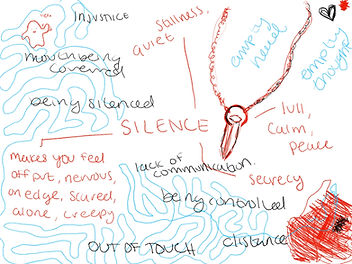 INJUSTICE
stillness,
quiet
mouth being
covered
being silenced
SILENCE
lull,
calm,
peace
empty
makes you feel
off put, nervous,
on edge, scared,
alone, creepy
lack of
communication.
secrecy
being controlled
OUT OF TOUCH
distance
empty